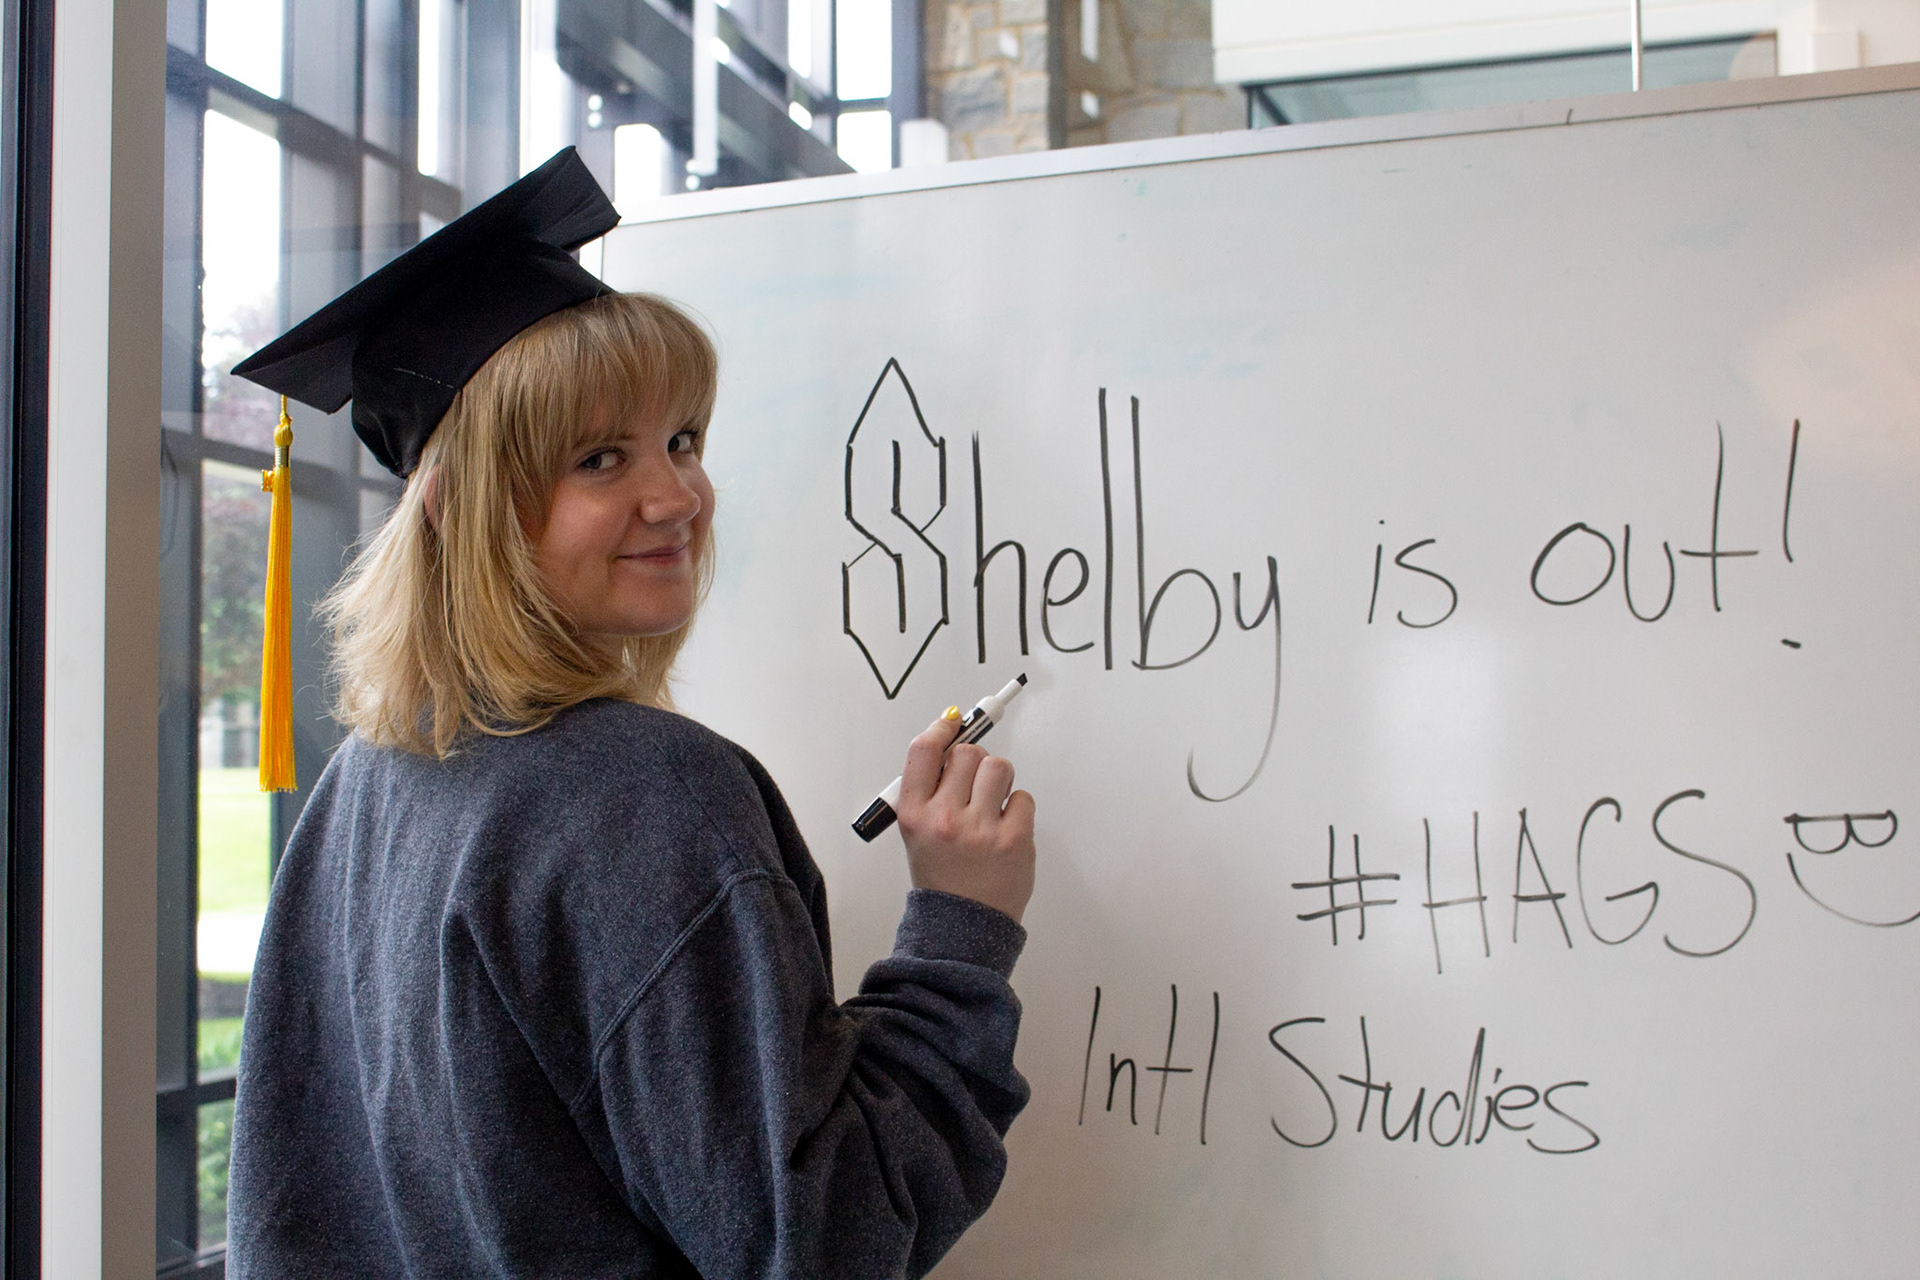 Shelby is out!
#HAGS B)
Intl Studies